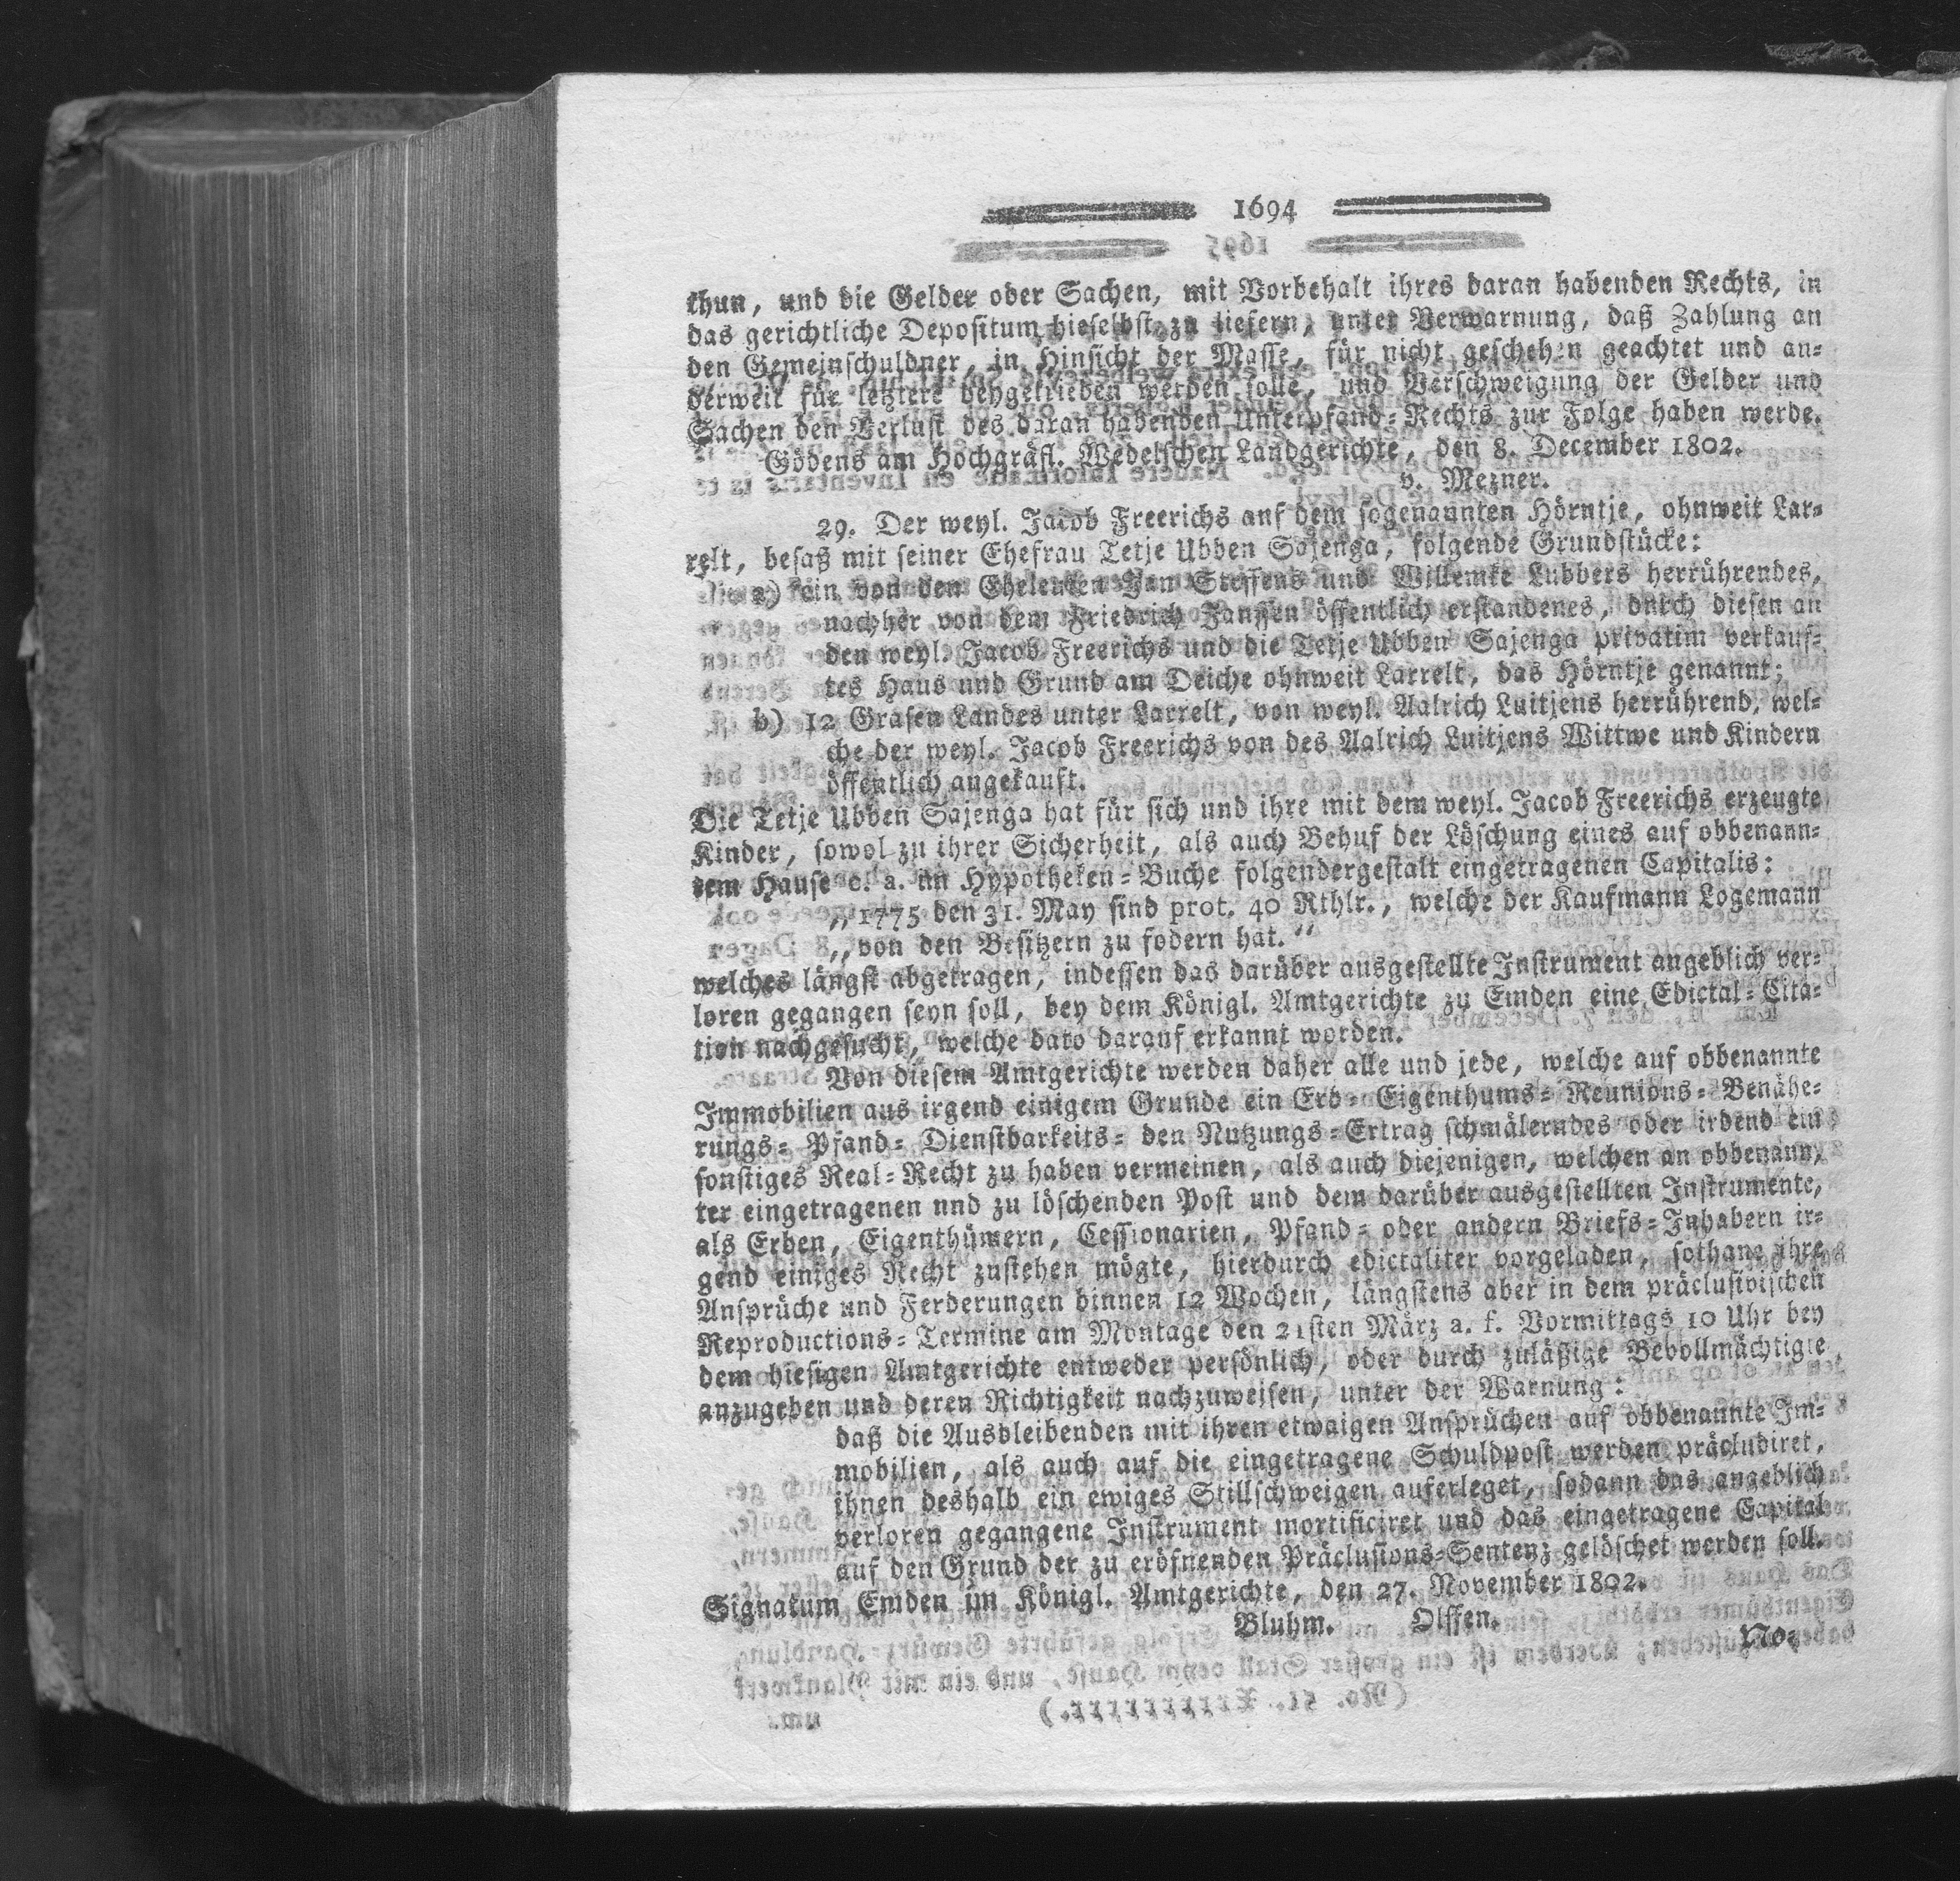 1694
thun, und die Gelder oder Sachen, mit Vorbehalt ihres daran habenden Rechts, in
das gerichtliche Depositum hieselbst zu liefern, unter Verwarnung, daß Zahlung an
den Gemeinschuldner, in Hinsicht der Masse, für nicht geschehen geachtet und an-
derweit für letztere beygetrieben werden solle, und Verschweigung der Gelder und
Sachen den Verlust des daran habenden Unterpfand-Rechts zur Folge haben werde.
Gödens am Hochgräfl. Wedelschen Landgerichte, den 8. December 1802.
v. Mezner.
29. Der weyl. Jacob Freerichs auf dem sogenannten Hörntje, ohnweit Lar-
relt, besaß mit seiner Ehefrau Tetje Ubben Sajenga, folgende Grundstücke:
a) ein von den Eheleuten Jan Steffens und Willemke Lubbers herrührendes,
nachher von dem Friedrich Janssen öffentlich erstandenes, durch diesen an
den weyl. Jacob Freerichs und die Tetje Ubben Sajenga privatim verkauf-
tes Haus und Grund am Deiche ohnweit Larrelt, das Hörntje genannt;
b) 12 Grasen Landes unter Larrelt, von weyl. Aalrich Luitjens herrührend, wel-
che der weyl. Jacob Freerichs von des Aalrich Luitjens Wittwe und Kindern
öffentlich angekauft.
Die Tetje Ubben Sajenga hat für sich und ihre mit dem weyl. Jacob Freerichs erzeugte
Kinder, sowol zu ihrer Sicherheit, als auch Behuf der Löschung eines auf obbenann-
tem Hause c. a. im Hypotheken-Buche folgendergestalt eingetragenen Capitalis:
„1775 den 31. May sind prot. 40 Rthlr., welche der Kaufmann Logemann
„von den Besitzern zu fodern hat.“
welches längst abgetragen, indessen das darüber ausgestellte Instrument angeblich ver-
loren gegangen seyn soll, bey dem Königl. Amtgerichte zu Emden eine Edictal-Cita-
tion nachgesucht, welche dato darauf erkannt worden.
Von diesem Amtgerichte werden daher alle und jede, welche auf obbenannte
Immobilien aus irgend einigem Grunde ein Erb- Eigenthums- Reunions- Benähe-
rungs- Pfand- Dienstbarkeits- den Nutzungs-Ertrag schmälerndes oder irdend ein
sonstiges Real-Recht zu haben vermeinen, als auch diejenigen, welchen an obbenann-
ter eingetragenen nnd zu löschenden Post und dem darüber ausgestellten Instrumente,
als Erben, Eigenthümern, Cessionarien, Pfand- oder andern Briefs-Inhabern ir-
gend einiges Recht zustehen mögte, hierdurch edictaliter vorgeladen, sothane ihre
Ansprüche und Ferderungen binnen 12 Wochen, längstens aber in dem präclusivischen
Reproductions-Termine am Montage den 21sten März a. f. Vormittags 10 Uhr bey
dem hiesigen Amtgerichte entweder persönlich, oder durch zuläßige Bevollmächtigte
anzugeben und deren Richtigkeit nachzuweisen, unter der Warnung:
daß die Ausbleibenden mit ihren etwaigen Ansprüchen auf obbenannte Im-
mobilien, als auch auf die eingetragene Schuldpost werden präcludiret,
ihnen deshalb ein ewiges Stillschweigen auferleget, sodann das angeblich
verloren gegangene Instrument mortificiret und das eingetragene Capital
auf den Grund der zu eröfnenden Präclusions-Sentenz gelöschet werden soll.
Signatum Emden im Königl. Amtgerichte, den 27. November 1802.
Bluhm. Olffen.
No-